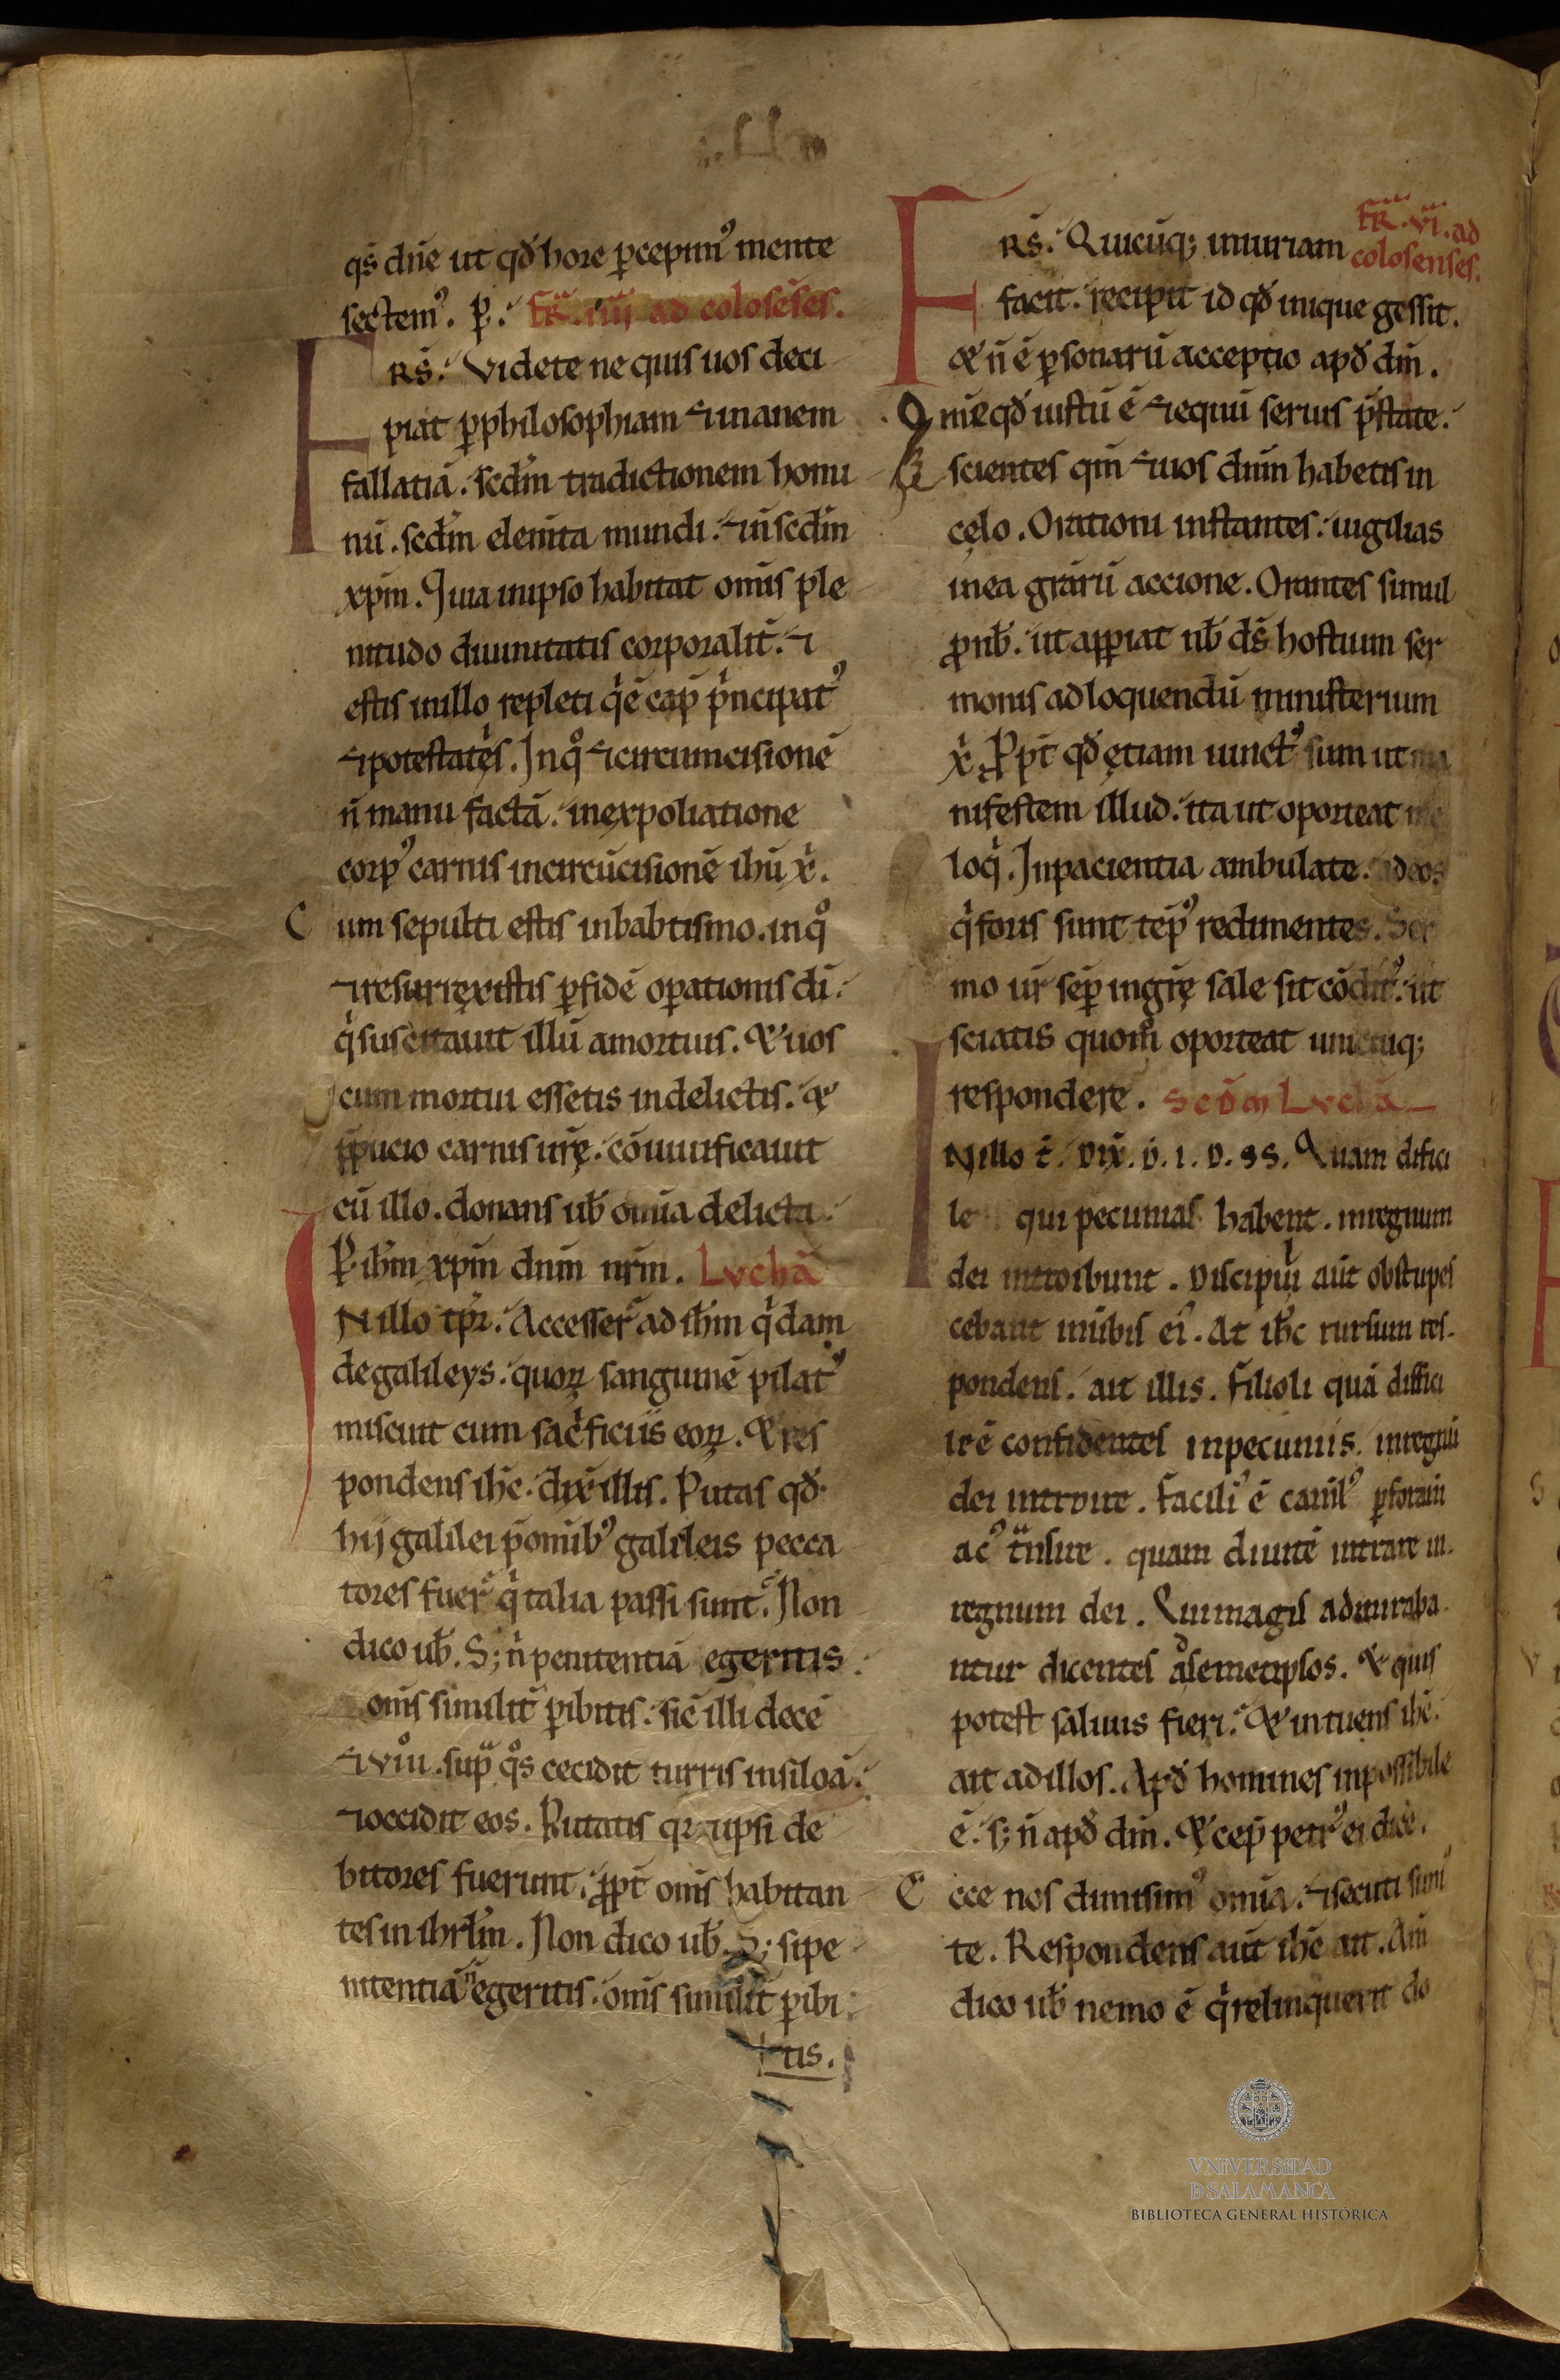 qs̄ dn̄e ut qđ hore ꝑcepim᷒ mente
sectem᷒. ꝑ. fr̄. iiii ad coloseses.
Rs̄. Videte ne quis uos deci
piat ꝑphilosophiam ⁊ inanem
fallatiā. scđm tradictionem homi
nū. scđm elem̄ta mundi. ⁊ n̄ scđm
xp̄m. Quia in ipso habitat omīs ple
nitudo diuinitatis corporalit̄. ⁊
estis in illo repleti q̇ ē cap̄ pͥncipat᷒
⁊ potestatęs. In qͦ ⁊ circumcisionē
n̄ manu factā. in expoliatione
corꝑ᷒ carnis in circūcisionē ihū xͥ.
Cum sepulti estis in babtismo. in qͦ
⁊ resurręxistis ꝑ fidē oꝑationis dī.
qͥ suscitauit illū a mortuis. & uos
cum mortui essetis in delictis. &
p̄pucio carnis ur̄ę. cōuiuificauit
cū illo. donans ub̄ om̄ia delicta.
P ih̄m xp̄m dn̄m nr̄m. Lvchā
N illo tp̄r. Accesser̄ ad ih̄m qͥdam
de galileys. quoꝝ sanguinē pilat᷒
miscuit cum sacͥficiis eoꝝ. & res
pondens ih̄c. dix̄ illis. Putas qđ
hij galilei p̄ om̄ib᷒ galileis pecca
tores fuer̄ qͥ talia passi sunt. Non
dico ub̄. S; n̄ penitentiā egeritis
om̄s similit̄ ꝑibitis. sic̄ illi decē
⁊ viii. sup̄ qͦs cecidit turris in siloā.
⁊ occidit eos. Putatis qꝛ ⁊ ipsi de
bitores fuerunt. p̄pt̄ om̄s habitan
tes in ihrl̄m. Non dico ub̄. S; si pe
nitentiā n̄ egeritis. om̄s similit̄ ꝑibi
tis.
fr̄. vi. ad
colosenses.
Rs̄. Quicūq; iniuriam
facit. recipit id qđ inique gessit.
& n̄ ē ꝑsonarū acceptio apđ dm̄.
Dn̄i qđ iustū ē ⁊ equū seruis p̄state.
scientes qm̄ ⁊ uos dn̄m habetis in
cęlo. Orationi instantes. uigilias
in ea gr̄arū accione. Orantes simul
ꝓ nb̄. ut aꝑiat nb̄ ds̄ hostium ser
monis ad loquendū ministerium
xͥ. Propt̄ qđ ętiam uinct᷒ sum ut ma
nifestem illud. ita ut oporteat me
loqͥ. In pacientia ambulate. ad eos
qͥ foris sunt tēp᷒ redimentes. Ser
mo ur̄ sēꝑ in gr̄ę sale sit cōdit᷒. ut
sciatis quom̄ oporteat unicuiq;
respondere. Scđm Lvchā
N illo t̄. Dix̄. D. I. D. SS. Quam difici
le qui pecunias habent. in regnum
dei introibunt. Discipuli aūt obstupes
cebant in ūbis ei᷒. At ih̄c rursum res
pondens. ait illis. Filioli quā diffici
le ē confidentes in pecuniis. in regnū
dei introire. Facili᷒ ē caml̄᷒ ꝑ foram̄
ac᷒ tͣnsire. quam diuitē intrare in
regnum dei. Qui magis admiraba
ntur dicentes ad semetipsos. & quis
potest saluus fieri. & intuens ih̄c.
ait ad illos. Apđ homines inpossibile
ē. s; n̄ apđ dm̄. & cep̄ petr᷒ ei dicē.
Ecce nos dimisim᷒ om̄ia. ⁊ secuti sum᷒
te. Respondens aūt ih̄c ait. Am̄
dico ub̄ nemo ē qͥ relinquerit do
VNIVERSIDAD
D SALAMANCA
BIBLIOTECA GENERAL HISTÓRICA